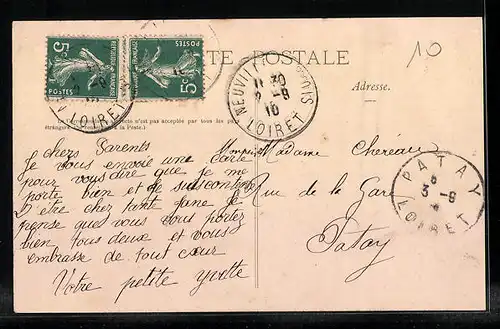 5c POSTES
POSTES 5c
TE POSTALE
10
NEUVIL
LOIRET
11 30
3 -9
10
Adresse.
n'est pas accepté par tous les pays
étrangers
à la Poste.)
chers Parents
Je vous envoie une carte
pour vous dire que je me
porte bien et je suis contente
D'etre chez tante Jane Je
pense que vous vous portez
bien tous deux et vous
embrasse de tout cœur
Votre petite Yvette
Madame Chereau
Rue de la Gare
Patay
PATAY
3 -9
LOIRET